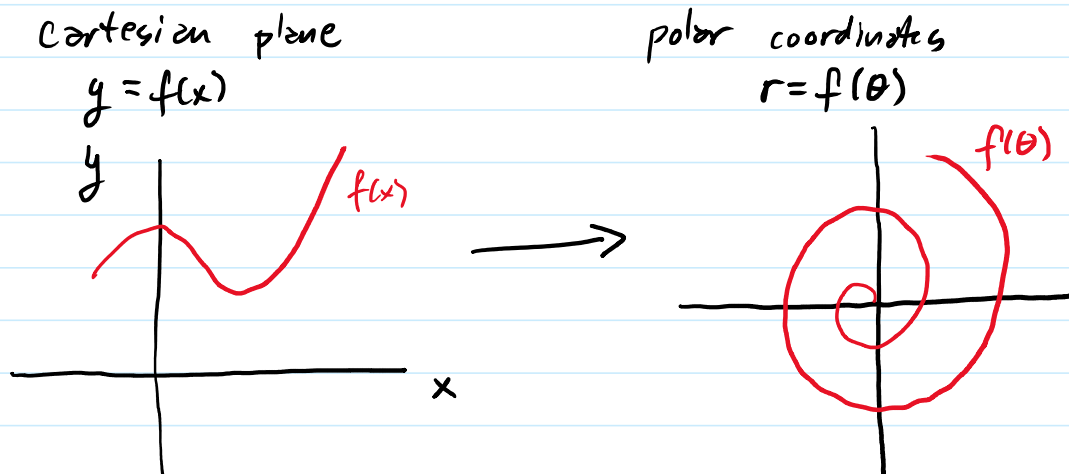 Cartesian plane
y = f(x)
y
f(x)
x
polar coordinates
r = f(θ)
f(θ)